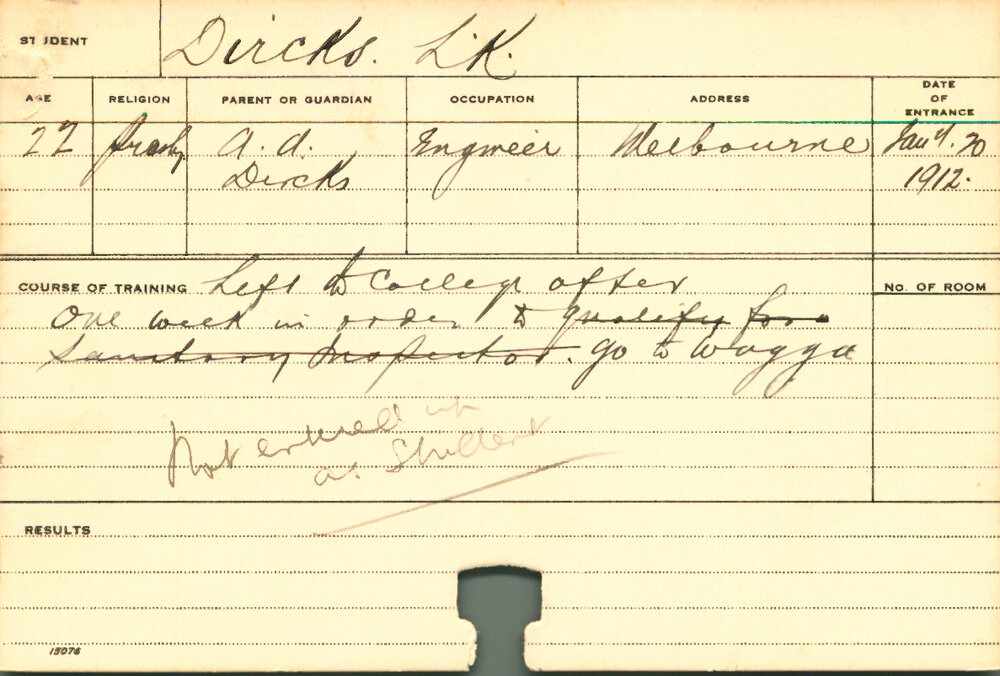 STUDENT Dircks. L.K.
AGE RELIGION PARENT OR GUARDIAN OCCUPATION ADDRESS DATE OF ENTRANCE
22 Presby. A. A. Dircks Engineer Melbourne Jany. 30 1912.
COURSE OF TRAINING Left to College after
No. OF ROOM
One week in order to qualify for a
Sanitary Inspector. go to Wagga
Not entered up
as Student
RESULTS
15076